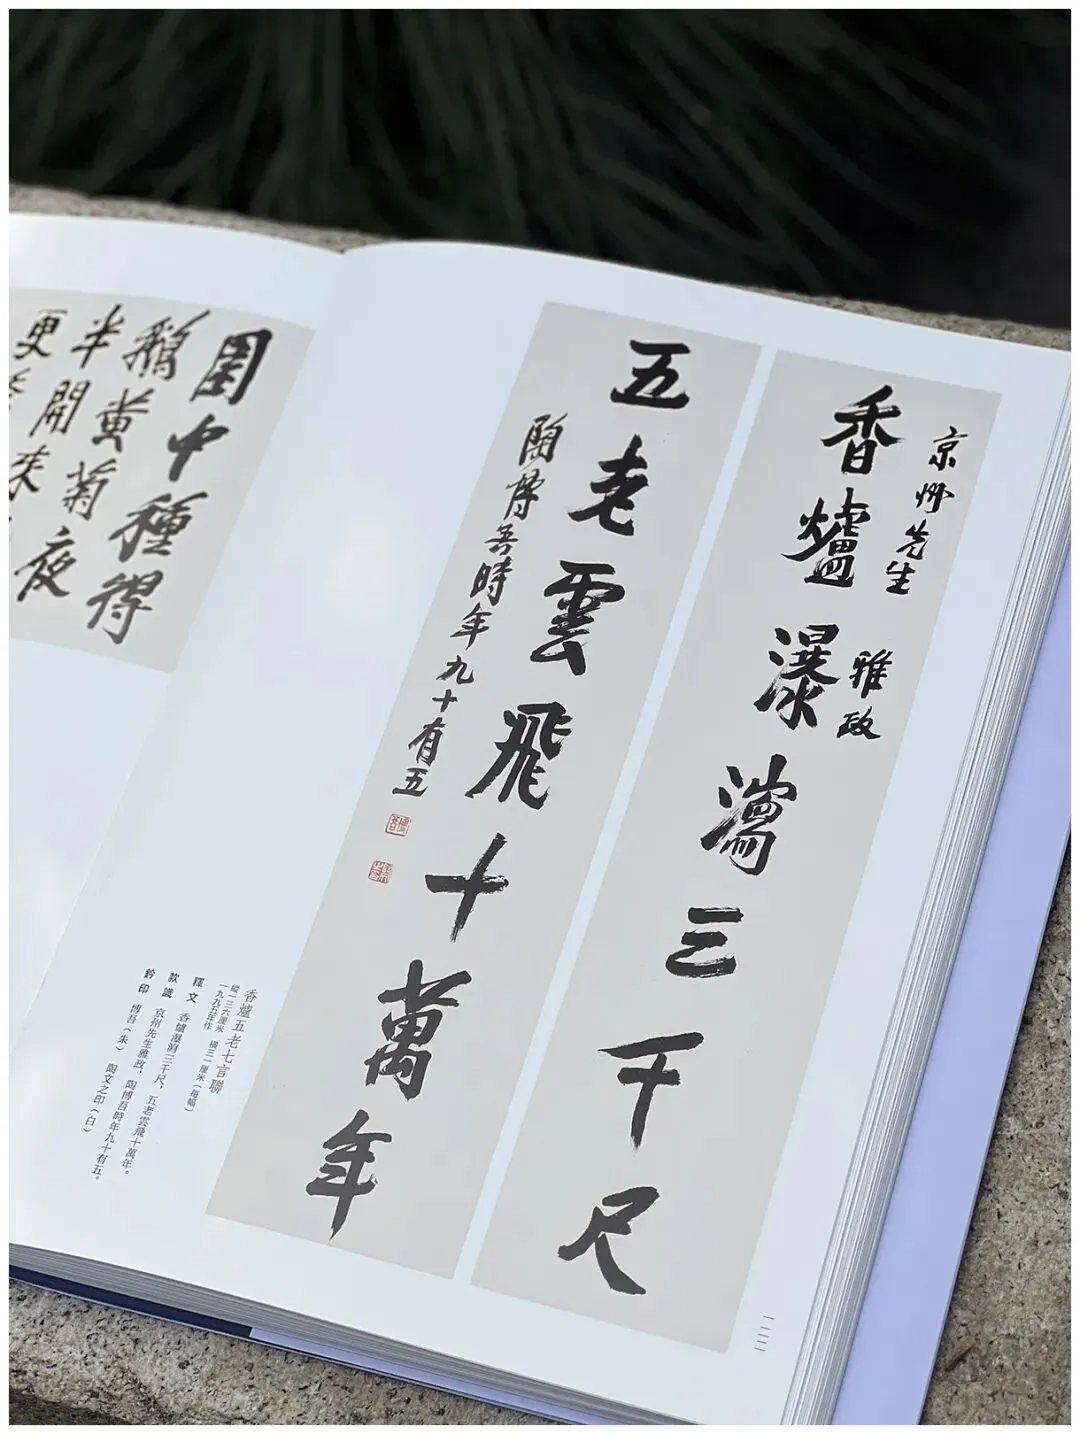 京州先生
雅政
香爐瀑瀉三千尺
五老雲飛十萬年
陶博吾時年九十有五
博吾
香爐五老七言聯
縱一三六厘米 橫三一厘米（每幅）
一九九五年作
釋文 香爐瀑瀉三千尺，五老雲飛十萬年。
款識 京州先生雅政，陶博吾時年九十有五。
鈐印 博吾（朱） 陶文之印（白）
園中種得
鵝黃菊夜
半開來
更